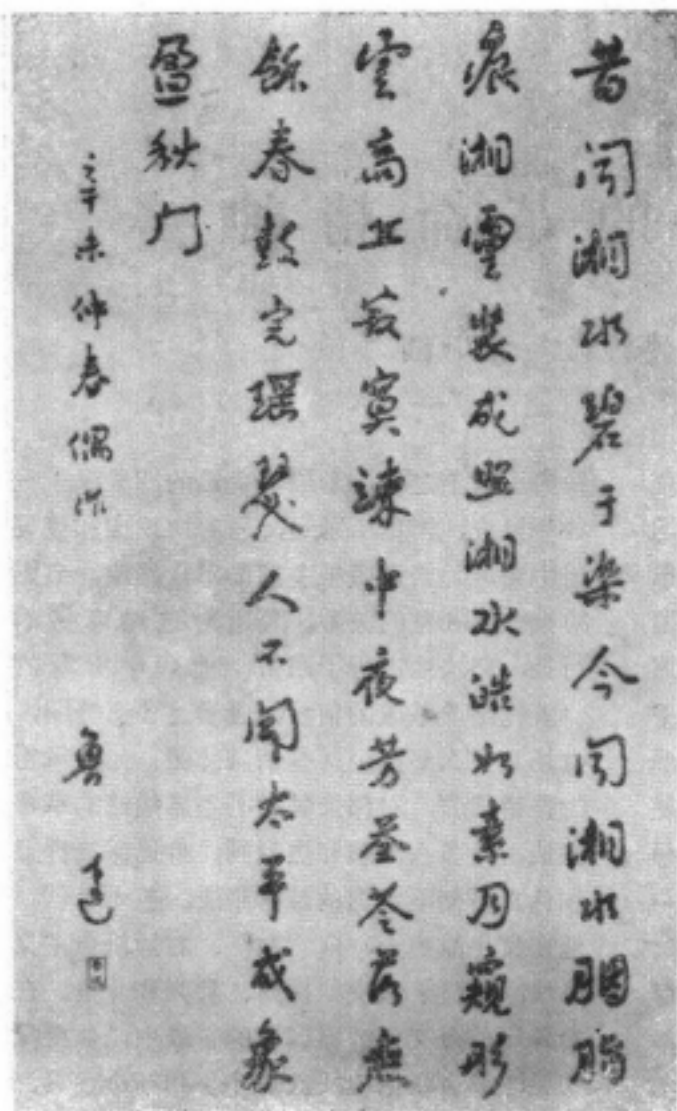 昔聞湘水碧于染今聞湘水胭脂
痕湘靈裝成照湘水皓如素月窺彤
雲高丘寂寞竦中夜芳荃苓落無
餘春鼓完瑤瑟人不聞太平成象
盈秋門
辛未仲春偶作
魯迅